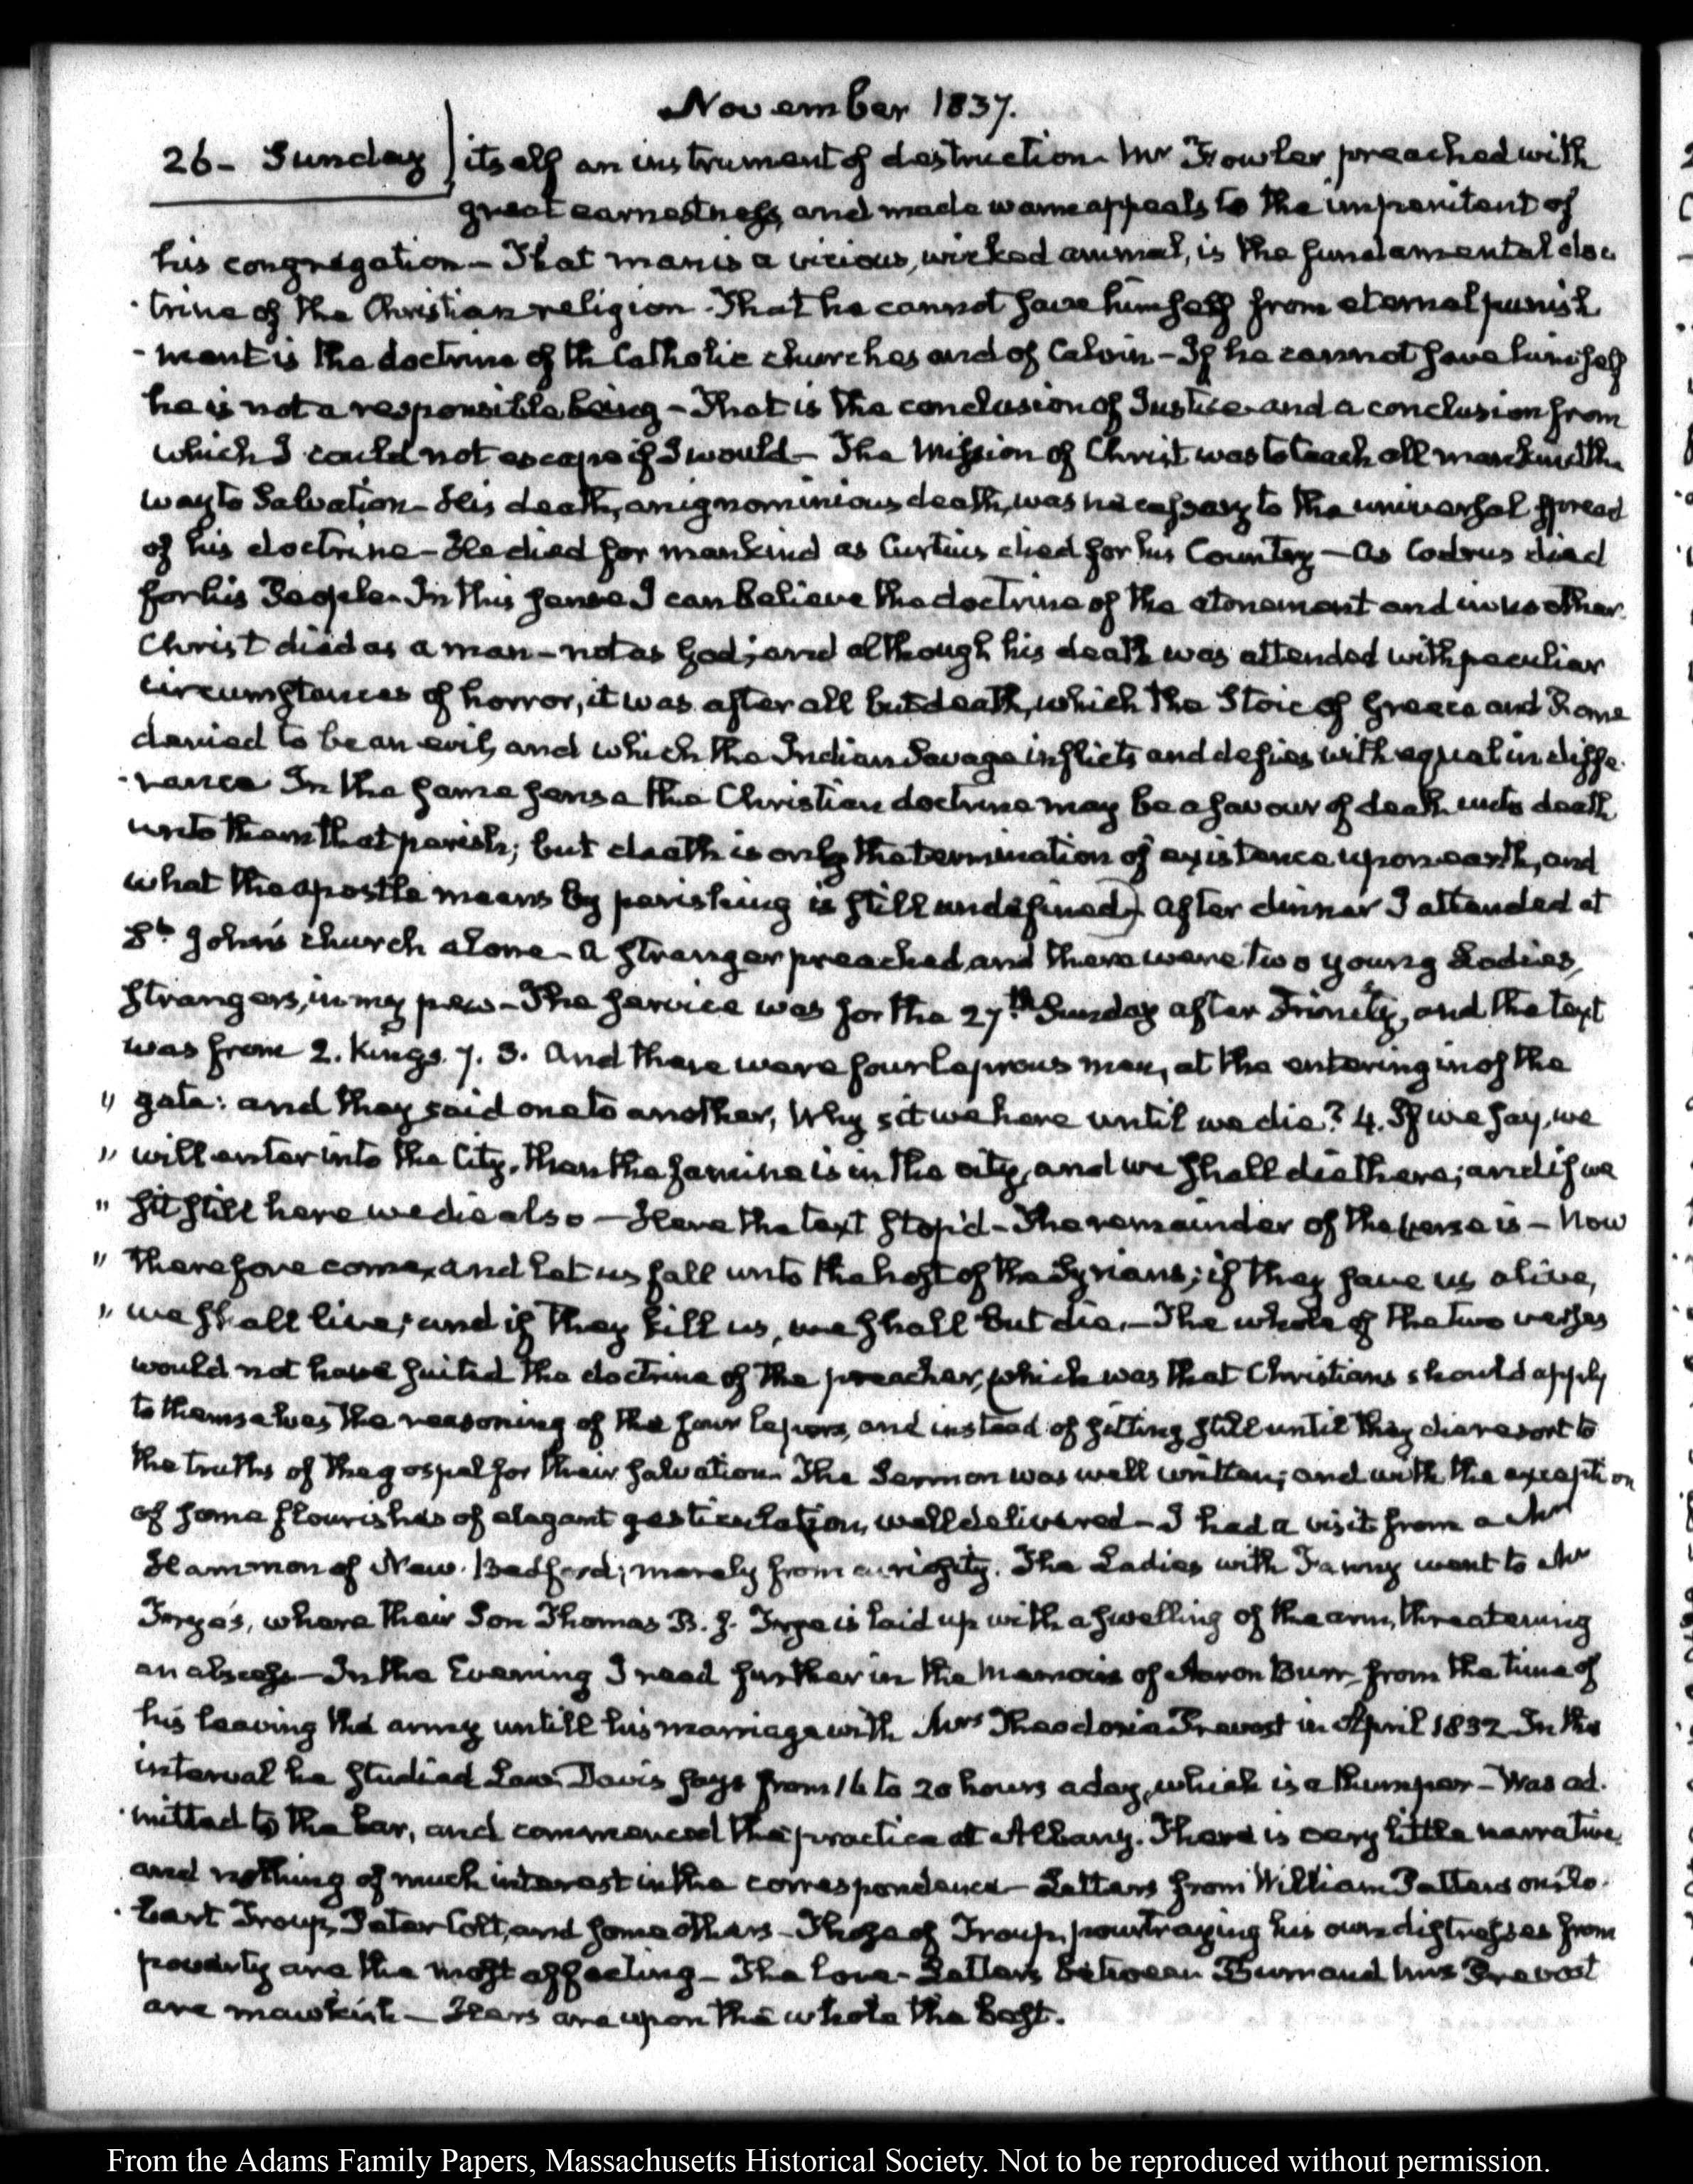 November 1837.
26 - Sunday itself an instrument of destruction. Mr Fowler preached with
great earnestness, and made warm appeals to the impenitent of
his congregation - That man is a vicious, wicked animal, is the fundamental doc
-trine of the Christian religion. That he cannot save himself from eternal punish
-ment is the doctrine of th Catholic churches and of Calvin - If he cannot save himself
he is not a responsible being - That is the conclusion of Justice and a conclusion from
which I could not escape if I would - The Mission of Christ was to teach all mankind the
way to Salvation - His death, an ignominious death, was necessary to the universal spread
of his doctrine - He died for mankind as Curtius died for his Country - as Codrus died
for his People. In this sense I can believe the doctrine of the atonement and in no other.
Christ died as a man - not as God; and although his death was attended with peculiar
circumstances of horror, it was after all but death, which the Stoic of Greece and Rome
denied to be an evil, and which the Indian Savage inflicts and defies with equal indiffe
-rence In the same sense the Christian doctrine may be a savour of death unto death
unto them that perish; but death is only the termination of existence upon earth, and
what the apostle means by perishing is still undefined) After dinner I attended at
St. John's church alone - A stranger preached, and there were two young Ladies,
strangers, in my pew - The service was for the 27th Sunday after Trinity, and the text
was from 2. Kings. 7. 3. And there were four leprous men, at the entering in of the
" gate: and they said one to another, Why sit we here until we die? 4. If we say, we
" will enter into the City, then the famine is in the city, and we shall die there; and if we
" sit still here we die also - Here the text stop'd - The remainder of the verse is - Now
" therefore come, and let us fall unto the host of the Syrians; if they save us alive,
" we shall live; and if they kill us, we shall but die. - The whole of the two verses
would not have suited the doctrine of the preacher, which was that Christians should apply
to themselves the reasoning of the four lepers, and instead of sitting still until they die resort to
the truths of the gospel for their salvation. The Sermon was well written; and with the exception
of some flourishes of elegant gesticulation, well delivered - I had a visit from a Mr
Hammon of New-Bedford; merely from curiosity. The Ladies with Fanny went to Mr
Frye's, where their Son Thomas B. J. Frye is laid up with a swelling of the arm, threatening
an abscess - In the Evening I read further in the Memoirs of Aaron Burr - from the time of
his leaving the army untill his marriage with Mrs Theodosia Prevost in April 1832 In this
interval he studied Law. Davis says from 16 to 20 hours a day, which is a thumper - Was ad
-mitted to the bar, and commenced the practice at Albany. There is very little narrative,
and nothing of much interest in the correspondence - Letters from William Patterson, Ro
-bert Troup, Peter Colt, and some others - Those of Troup, pourtraying his own distresses from
poverty are the most affecting - The love-Letters between Burr and Mrs Prevost
are mawkish - Hers are upon the whole the best.
From the Adams Family Papers, Massachusetts Historical Society. Not to be reproduced without permission.